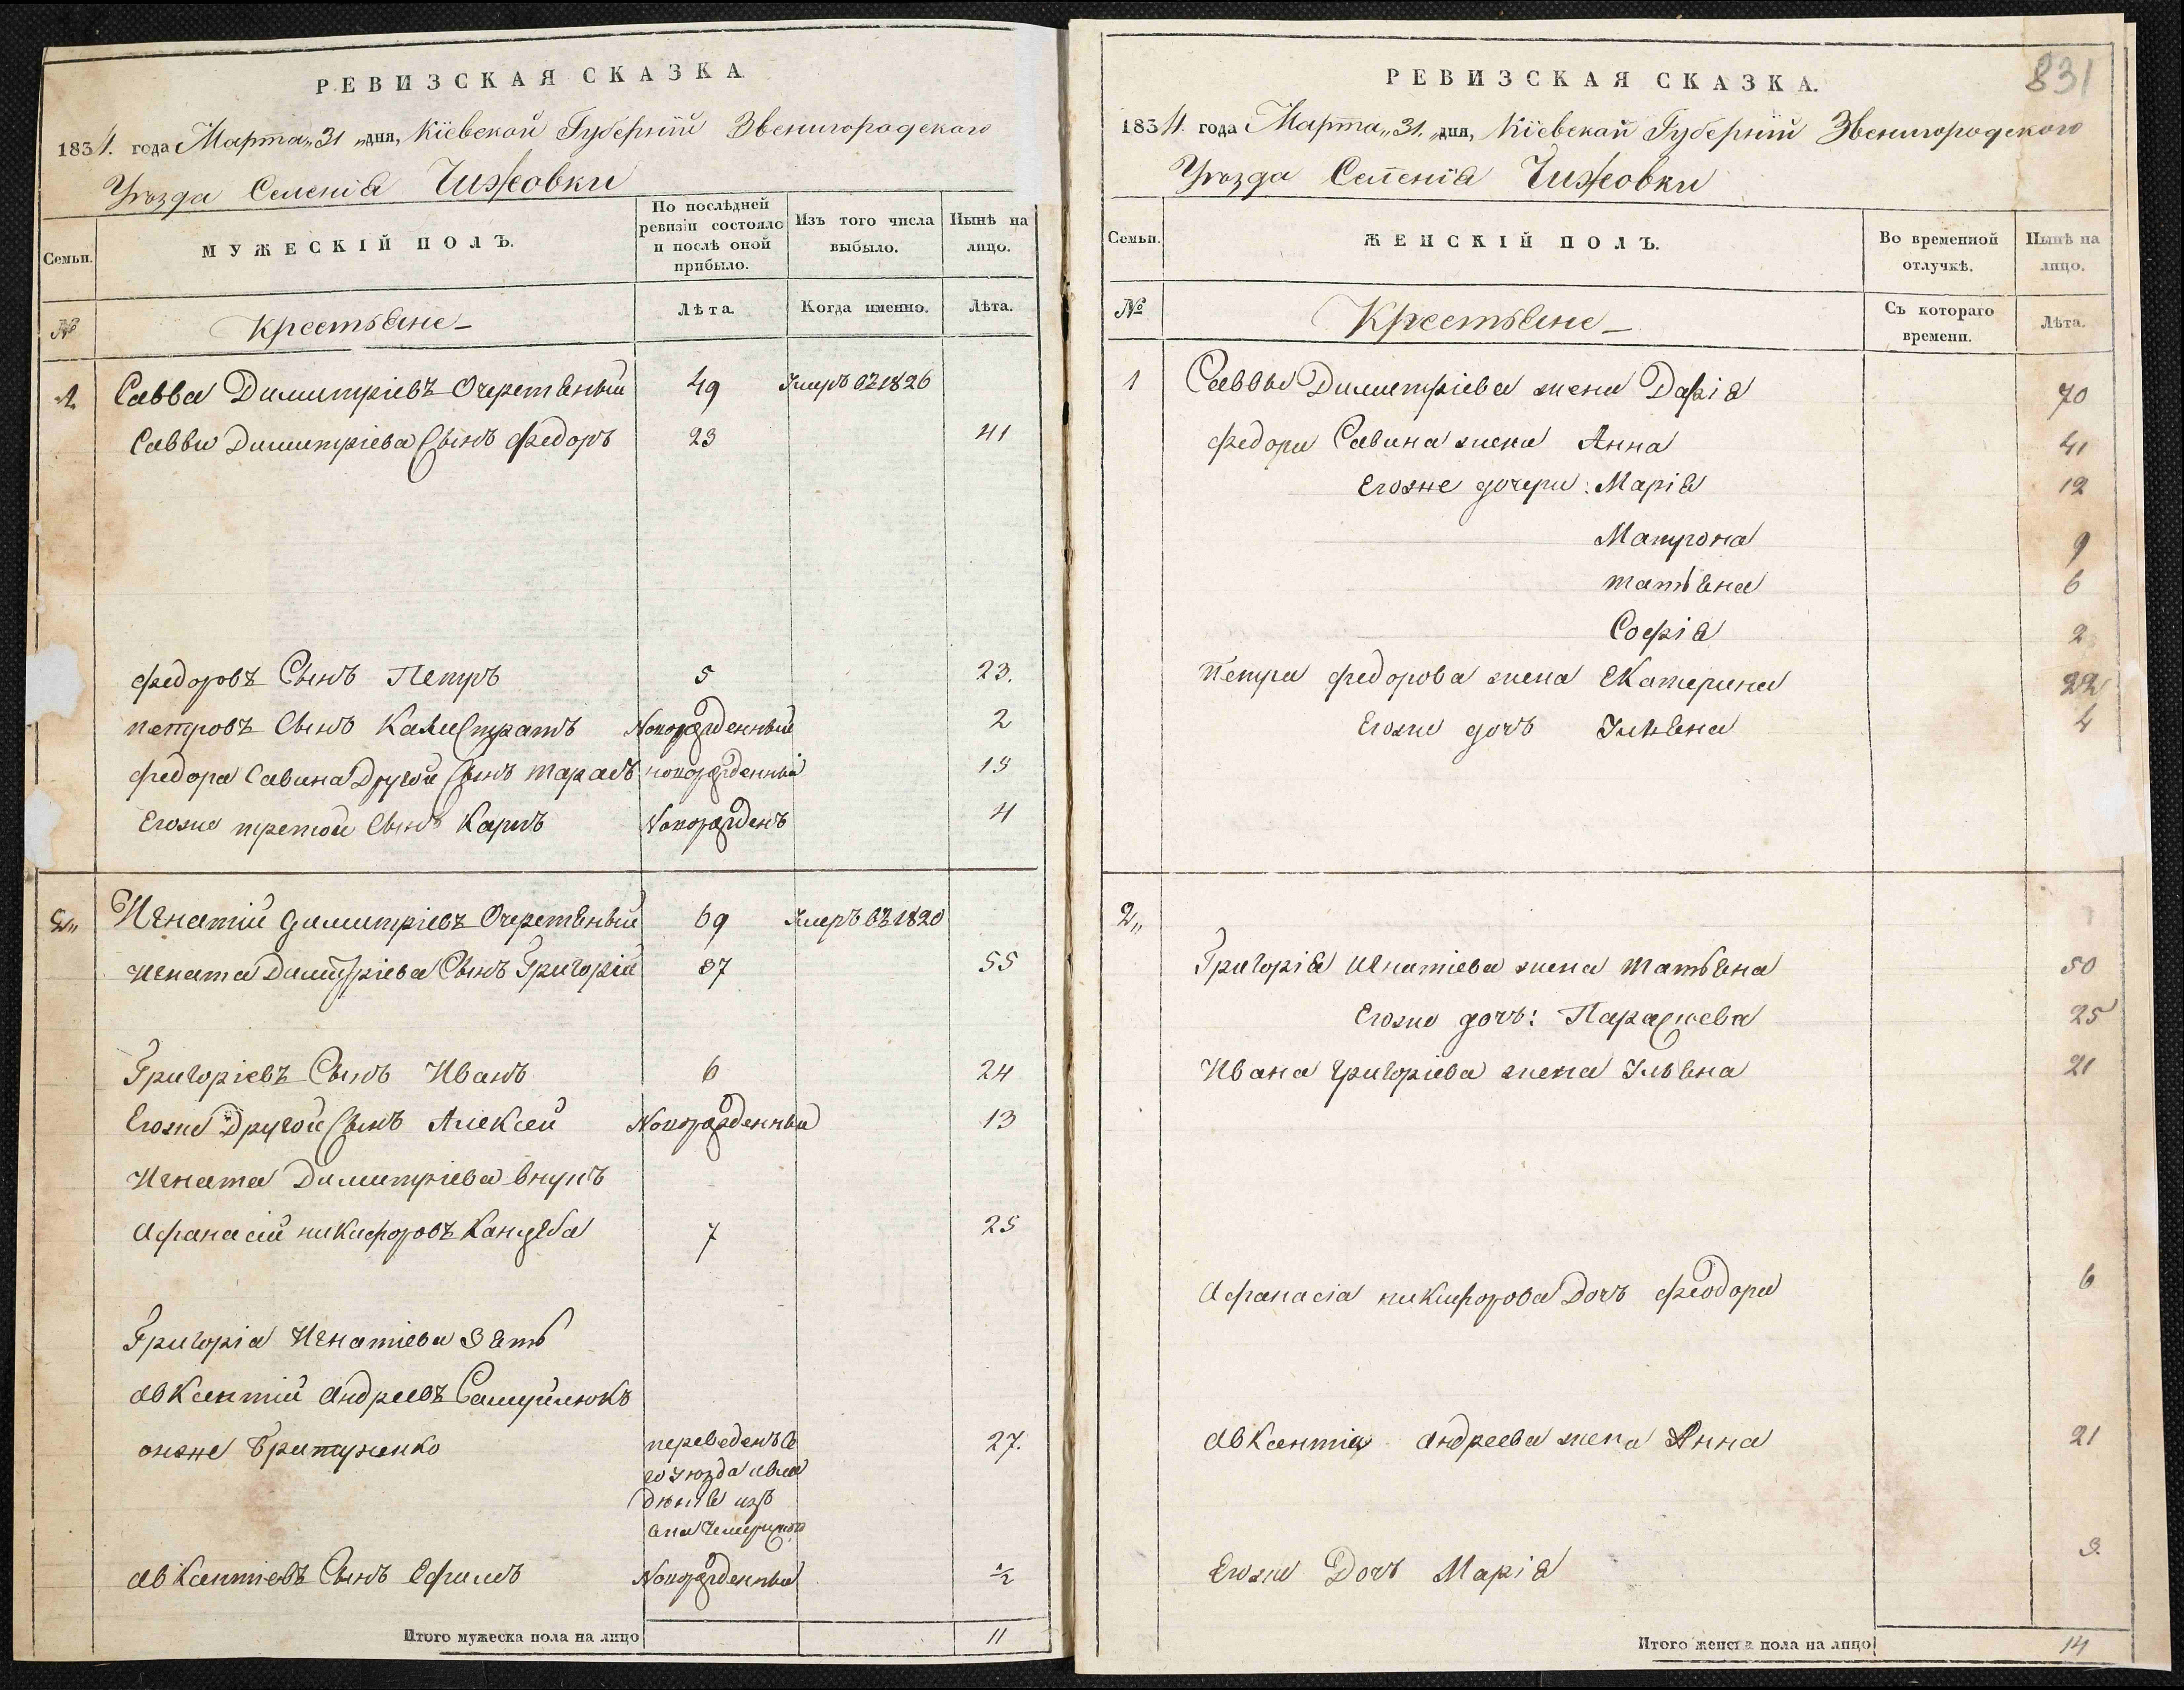 РЕВИЗСКАЯ СКАЗКА.
1834. года Марта „31 „дня, Кіевской Губерніи Звенигородскаго
Уѣзда Селенія Чижовки
Семьи. МУЖЕСКІЙ ПОЛЪ. По послѣдней ревизіи состояло и послѣ оной прибыло. Изъ того числа выбыло. Нынѣ на лицо.
№ Крестьяне Лѣта. Когда именно. Лѣта.
1 Савва Димитріевъ Очеретяный 49 Умеръ въ 1826
Саввы Димитріева Сынъ Федоръ 23 41
Федоровъ Сынъ Петръ 5 23.
Петровъ Сынъ Калистратъ Новорожденный 2
Федора Савина Другой Сынъ Тарасъ новорожденный 13
Егоже третой Сынъ Карпъ Новорожденъ 4
2„ Игнатій Димитріевъ Очеретяный 69 Умеръ въ 1820
Игната Димитріева Сынъ Григорій 37 55
Григоріевъ Сынъ Иванъ 6 24
Егоже Другой Сынъ Алексей Новорожденный 13
Игната Димитріева внукъ
Афанасій Никифоровъ Кандыба 7 25
Григорія Игнатіева Зять
Авксентій Андреевъ Самуйлюкъ
онже Гритуненко переведенъ 27.
дѣнія изъ
Авксентіевъ Сынъ Ефимъ Новорожденный ½
Итого мужеска пола на лицо 11
831
РЕВИЗСКАЯ СКАЗКА.
1834. года Марта „31. „дня, Кіевской Губерніи Звенигородскаго
Уѣзда Селенія Чижовки
Семьи. ЖЕНСКІЙ ПОЛЪ. Во временной отлучкѣ. Нынѣ на лицо.
№ Крестьяне Съ котораго времени. Лѣта.
1 Саввы Димитріева жена Дарія 70
Федора Савина жена Анна 41
Егоже дочери: Марія 12
Матрона 9
Татьяна 6
Софія 2
Петра Федорова жена Екатерина 22
Егоже дочь Ульяна 4
2„
Григорія Игнатіева жена Татьяна 50
Егоже дочь: Параскева 25
Ивана Григоріева жена Ульяна 21
Афанасія Никифорова Дочь Феодора 6
Авксентія Андреева жена Анна 21
Егоже Дочь Марія 3.
Итого женска пола на лицо 14